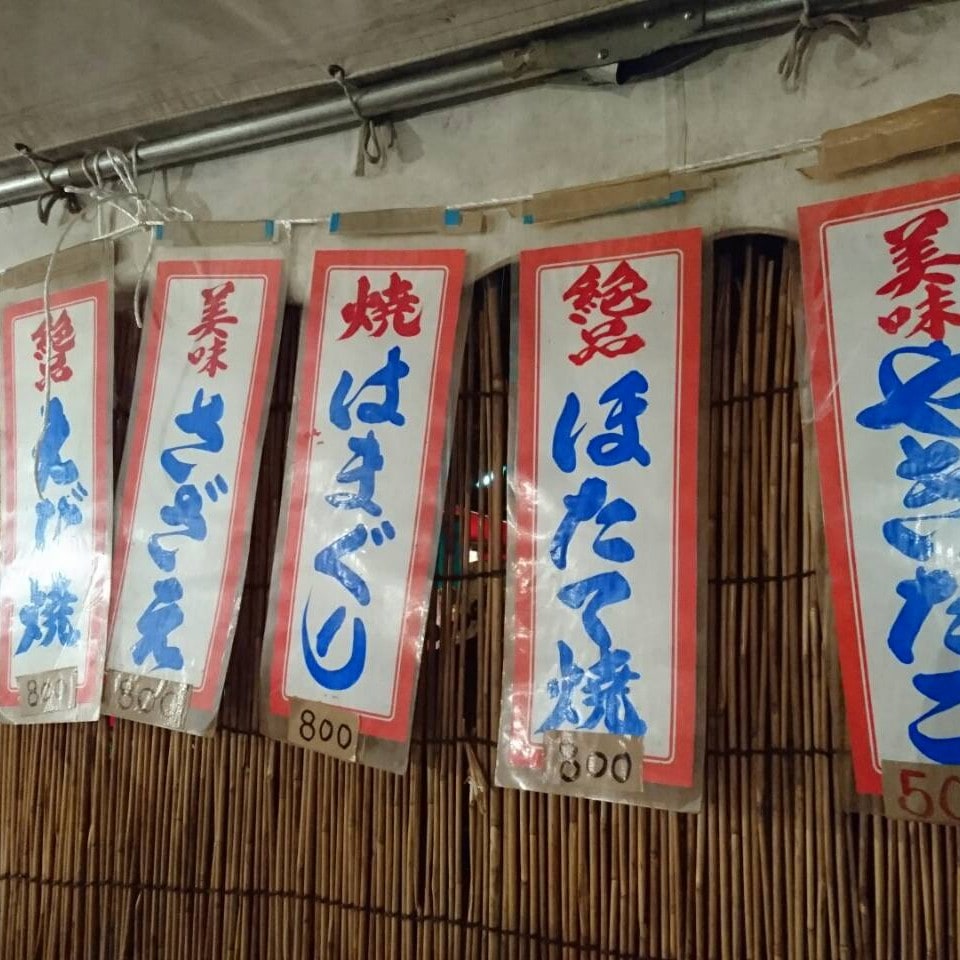 絶品
えび焼
800
美味
さざえ
800
焼
はまぐり
800
絶品
ほたて焼
800
美味
やきたこ
50